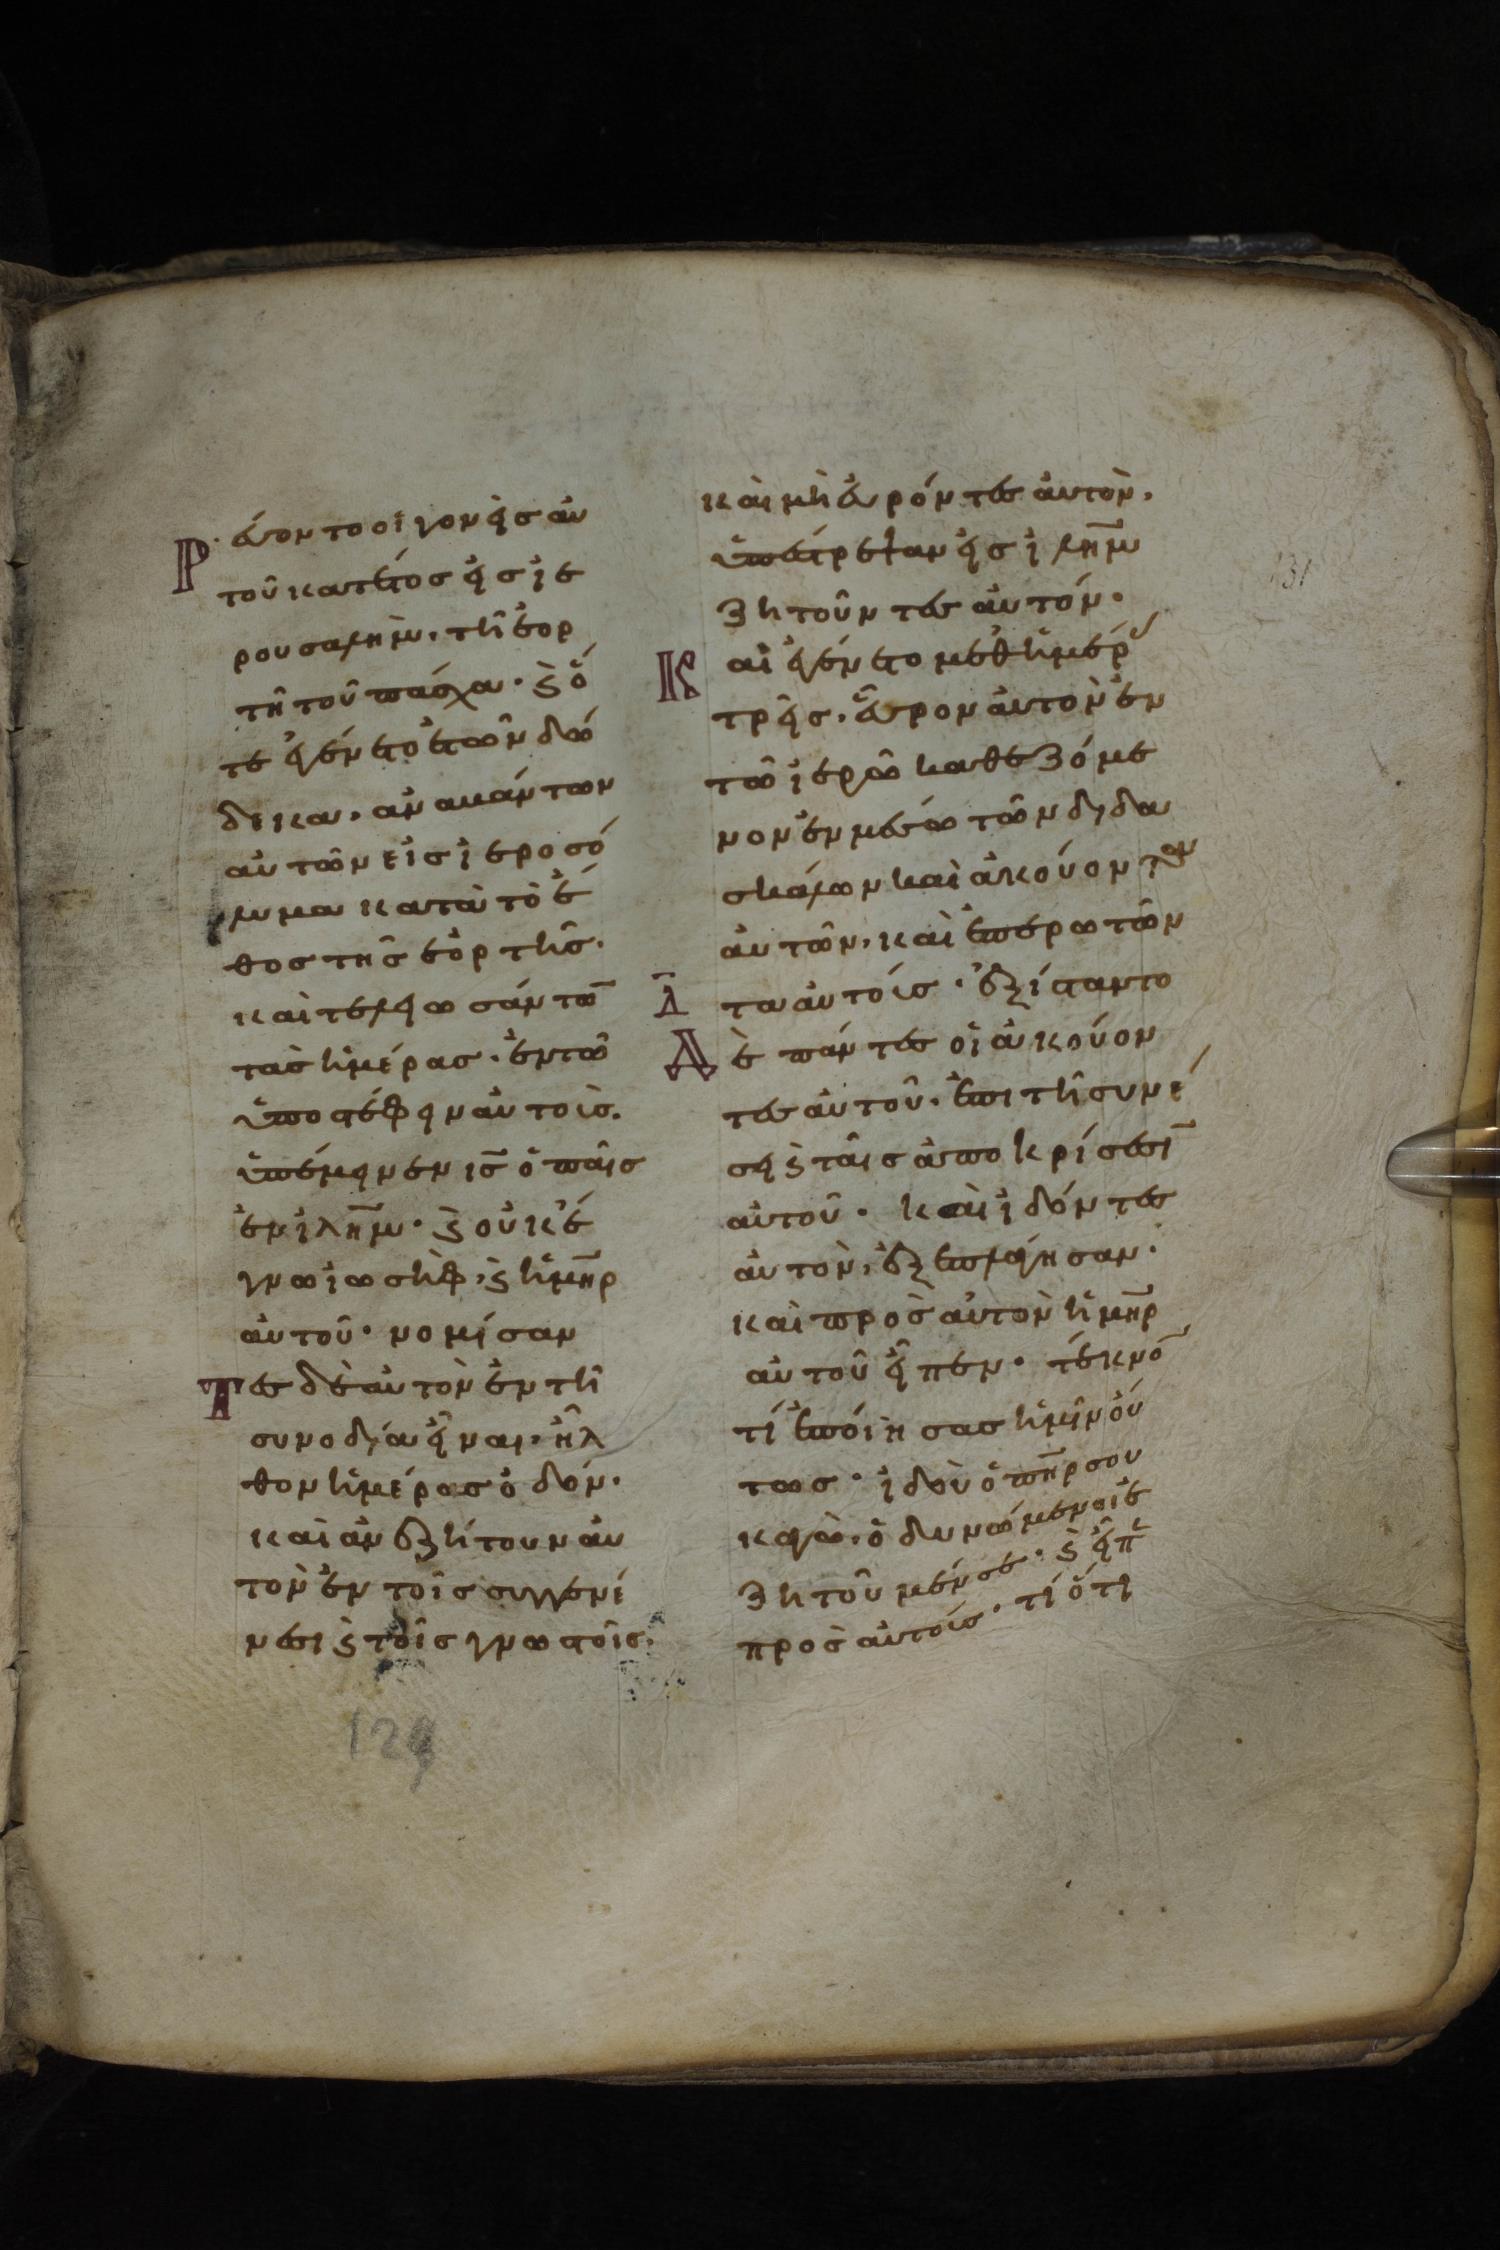 Ρεύοντο οἱ γονεῖς αὐ
τοῦ κατέτος εἰς ἱε
ρουσαλὴμ. τῆ ἑορ
τῆ τοῦ πάσχα. ϗ ὅ
τε ἐγένετο ἐτῶν δώ
δεκα, ἀναβάντων
αὐτῶν εἰς ἱεροσό
λυμα κατὰ τὸ ἔ
θος τῆς ἑορτῆς.
καὶ τελειωσάντω̅
τὰς ἡμέρας. ἐν τῶ
ὑποστέφειν αὐτοὺς.
ὑπέμεινεν ισ̅ ὁ παῖς
ἐν ἰλη̅μ. ϗ οὐκ ἔ
γνω ἰωσὴφ, ϗ ἡ μη̅ρ
αὐτοῦ. νομίσαν
Τες δὲ αὐτὸν ἐν τῆ
συνοδία εἶναι, ἦλ
θον ἡμέρας ὁδόν.
καὶ ἀνεζήτουν αὐ
τὸν ἐν τοῖς συγγενέ
νεσι ϗ τοῖς γνωστοῖς.
καὶ μὴ εὑρόντες αὐτὸν.
ὑπέστρεψαν εἰς ἰλη̅μ
ζητοῦντες αὐτόν.
Καὶ ἐγένετο μεθ ἡμέρ
τρεῖς. εὗρον αὐτὸν ἐν
τῶ ἱερῶ καθεζόμε
νον ἐν μέσω τῶν διδα
σκάλων καὶ ἀκούοντα
αὐτῶν, καὶ ἐπερωτῶν
τα αὐτούς. ἐξίσταντο
Δὲ πάντες οἱ ἀκούον
τες αὐτοῦ. ἐπι τῆ συνέ
σει ϗ ταῖς ἀποκρίσεσι̅
αὐτοῦ. καὶ ἰδόντες
αὐτὸν, ἐξεπλάγησαν.
καὶ πρὸς αὐτὸν ἡ μη̅ρ
αὐτοῦ εἶπεν. τέκνο̅
τί ἐποίησας ἡμῖν οὕ
τως. ἰδοὺ ὁ πη̅ρ σου
κἀγὼ, ὀδυνώμενοι ἐ
ζητοῦμέν σε. ϗ εἶπε
πρὸς αὐτούς. τί ὅτι
129
131